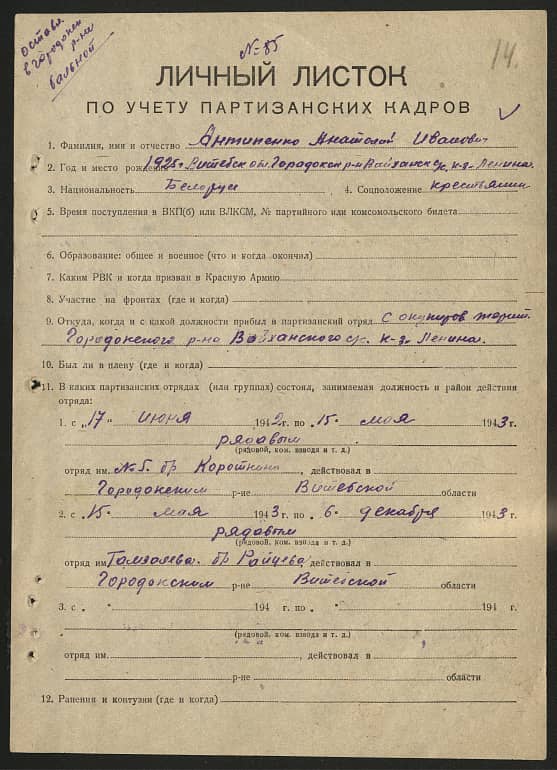 остался
в городокск
р-не
больной
№ 85
14.
ЛИЧНЫЙ ЛИСТОК
ПО УЧЕТУ ПАРТИЗАНСКИХ КАДРОВ
1. Фамилия, имя и отчество Антипенко Анатолий Иванович
2. Год и место рождения 1925г Витебской Городокск р-н Вайханск с/с. к-з. Ленина.
3. Национальность Белорус 4. Соцположение крестьянин
5. Время поступления в ВКП(б) или ВЛКСМ, № партийного или комсомольского билета
6. Образование: общее и военное (что и когда окончил)
7. Каким РВК и когда призван в Красную Армию
8. Участие на фронтах (где и когда)
9. Откуда, когда и с какой должности прибыл в партизанский отряд с оккупиров террит.
Городокского р-на Вайханского с/с. к-з. Ленина.
10. Был ли в плену (где и когда)
11. В каких партизанских отрядах (или группах) состоял, занимаемая должность и район действия
отряда:
1. с „17" июня 1942г. по „15. мая 1943г.
рядовым
(рядовой, ком. взвода и т. д.)
отряд им. №5. бр Короткина, действовал в
Городокским р-не Витебской области
2. с „15. мая 1943 г. по „6. декабря 1943г.
рядовым
(рядовой, ком. взвода и т. д.)
отряд им. бр Райцева, действовал в
Городокским р-не Витебской области
3. с „ " 194 г. по „ " 194 г.
(рядовой, ком. взвода и т. д.)
отряд им. , действовал в
р-не области
12. Ранения и контузии (где и когда)